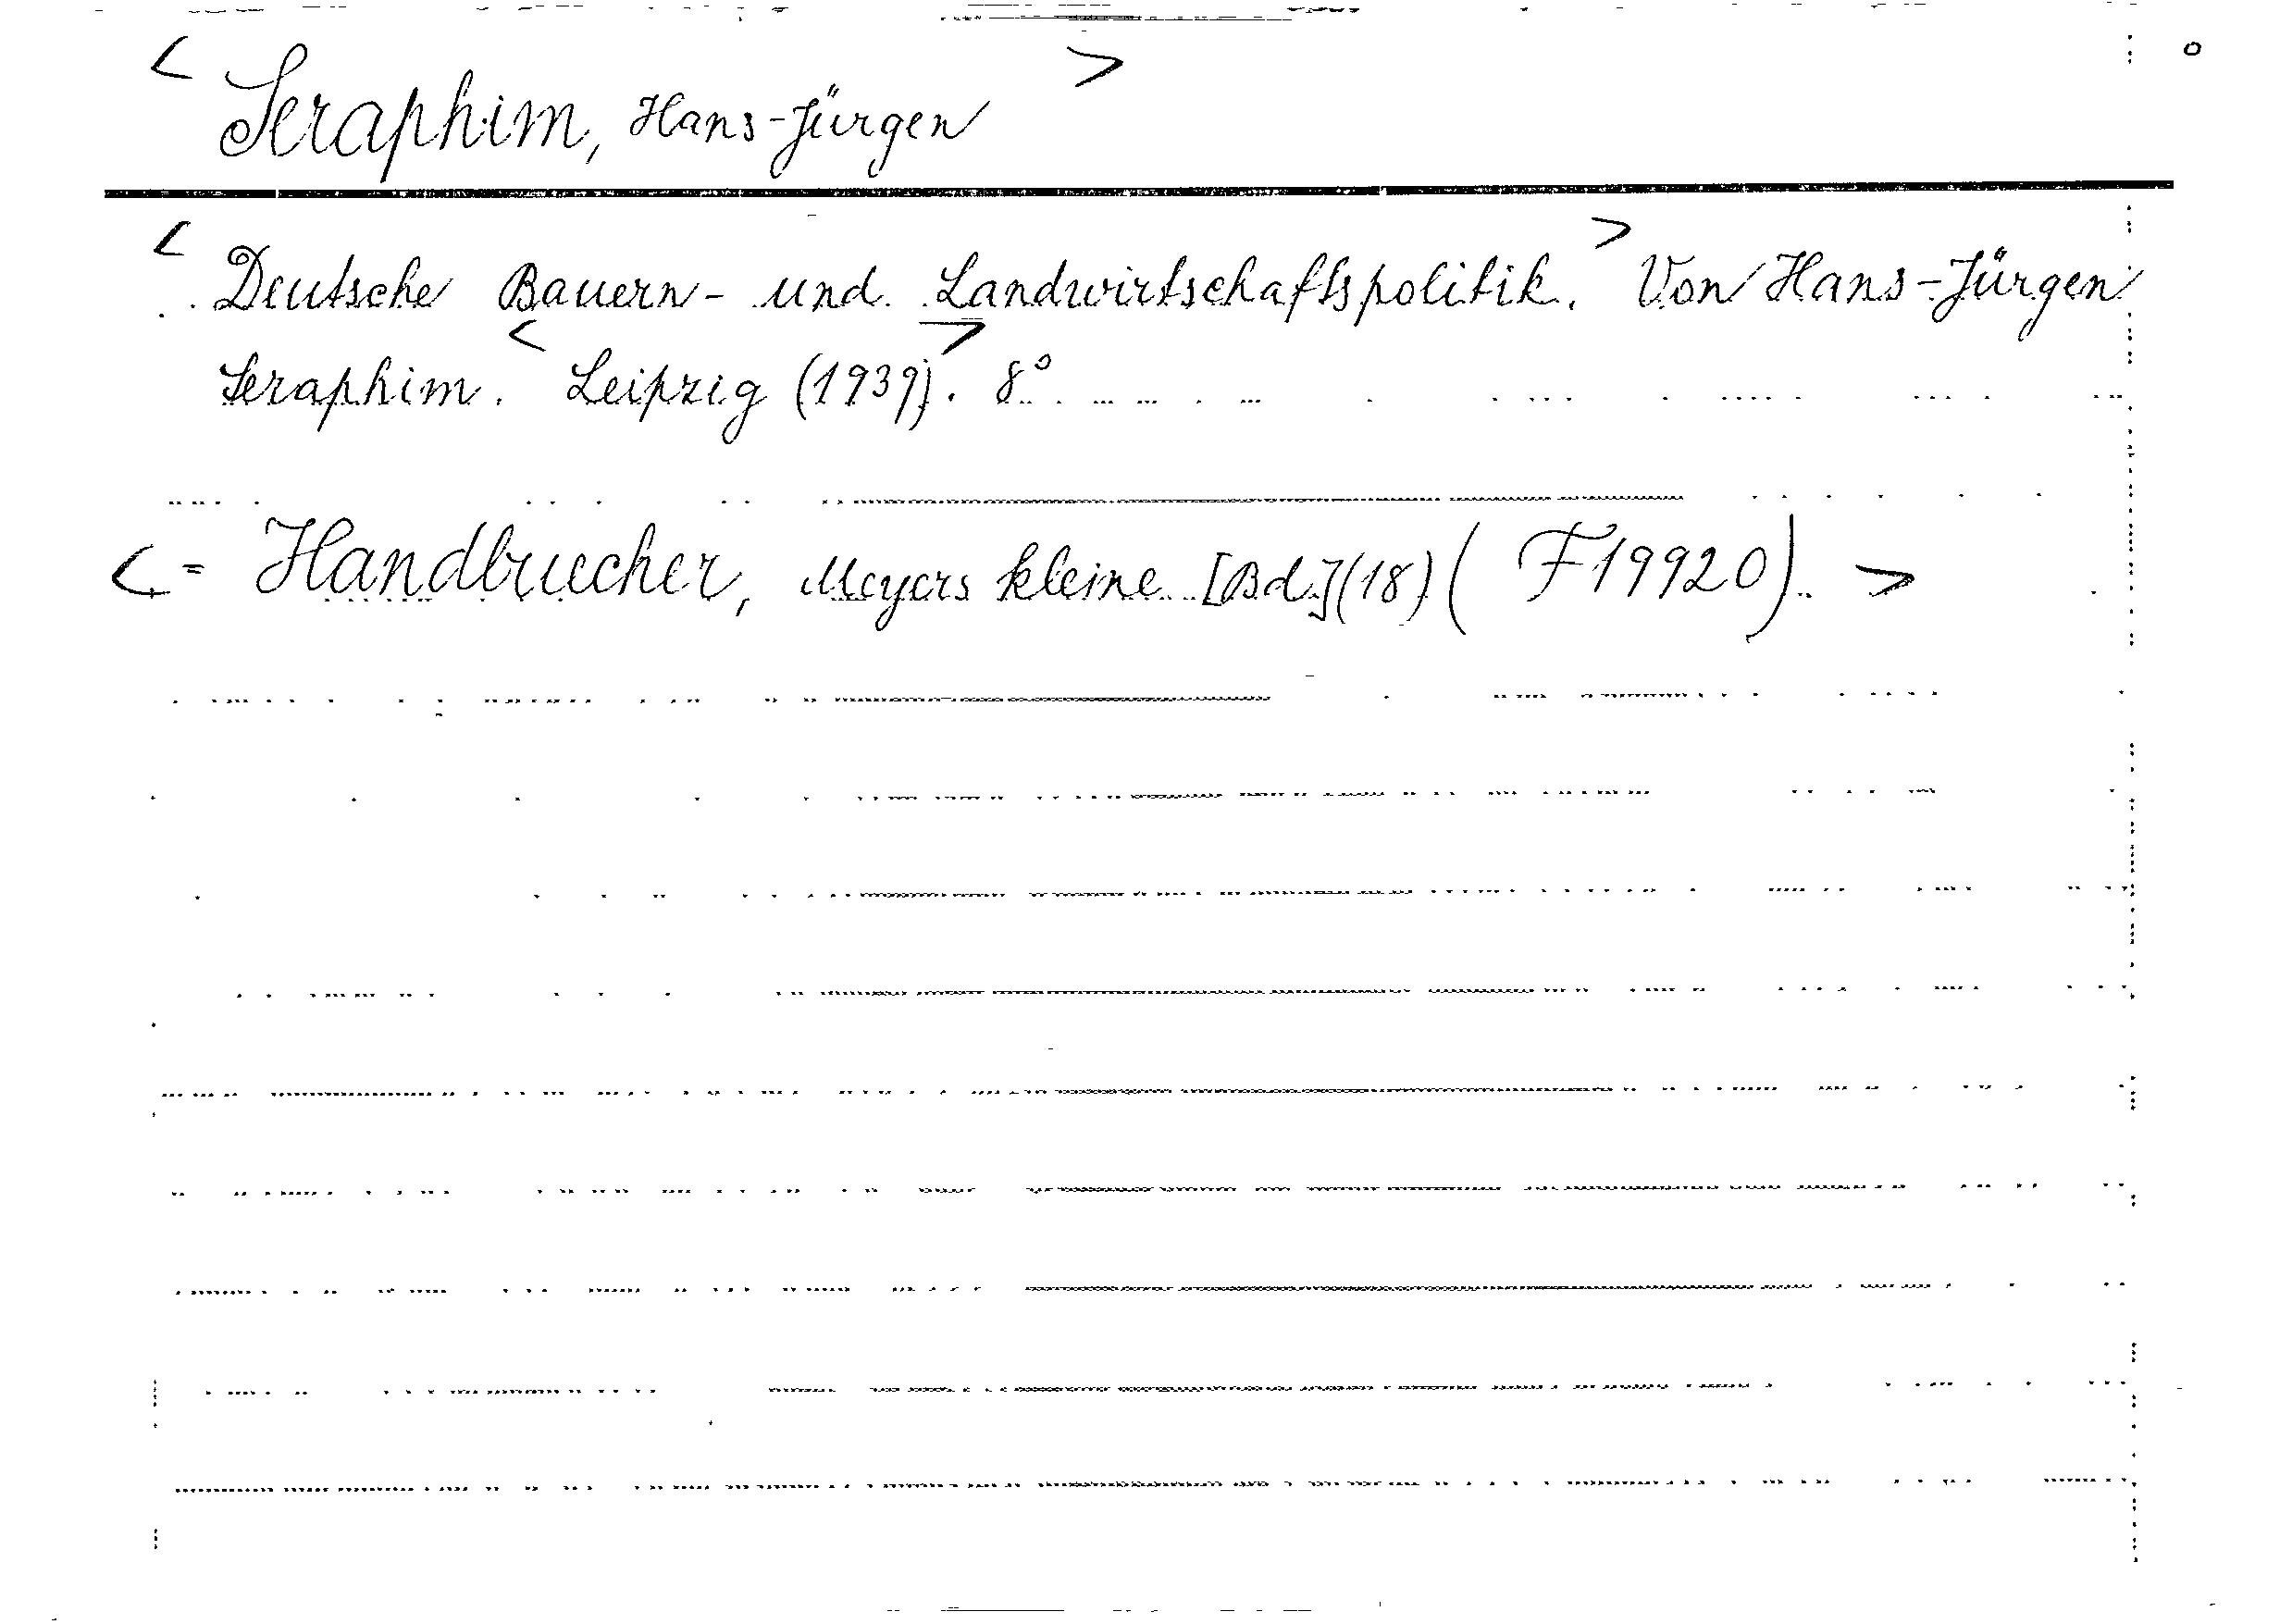 < Seraphim, Hans-Jürgen >
< Deutsche Bauern- und Landwirtschaftspolitik. > Von Hans-Jürgen
Seraphim. < Leipzig (1939). > 8°
< = Handbuecher, Meyers kleine [Bd.](18) (F19920). >